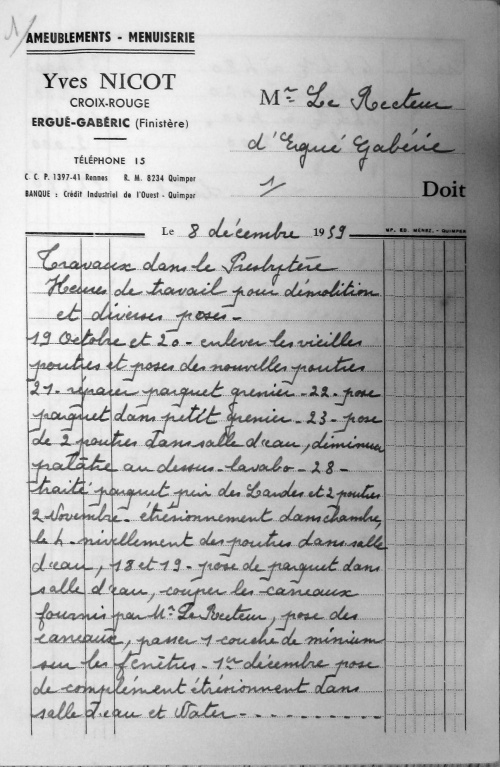 1/
AMEUBLEMENTS - MENUISERIE
Yves NICOT
CROIX-ROUGE
ERGUÉ-GABÉRIC (Finistère)
TÉLÉPHONE 15
C. C. P. 1397-41 Rennes R. M. 8234 Quimper
BANQUE : Crédit Industriel de l'Ouest - Quimper
Mr Le Recteur
d'Ergué Gabéric
1/
Doit
Le 8 décembre 1959
IMP. ED. MENEZ. - QUIMPER
Travaux dans le Presbytère
Heures de travail pour démolition
et diverses poses -
19 Octobre et 20 - enlever les vieilles
poutres et poses des nouvelles poutres
21 - réparer parquet grenier - 22 - pose
parquet dans petit grenier - 23 - pose
de 2 poutres dans salle d'eau, diminuer
palâtre au dessus - lavabo - 28 -
traité parquet pin des Landes et 2 poutres
2 Novembre - étrésionnement dans chambre,
le 4 - nivellement des poutres dans salle
d'eau, 18 et 19 - pose de parquet dans
salle d'eau, couper les carreaux
fournis par Mr Le Recteur, pose des
carreaux, passer 1 couche de minium
sur les fenêtres - 1er décembre pose
de complément étrésionnent dans
salle d'eau et Water - - - - - - - - -